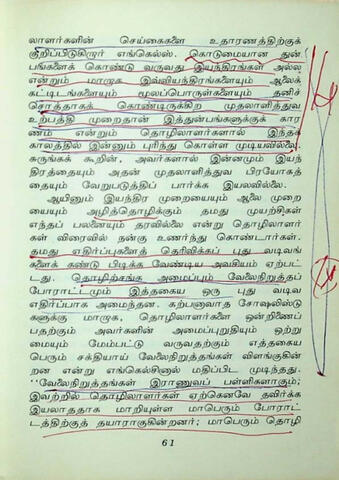 லாளர்களின் செய்கைகளை உதாரணத்திற்குக்
குறிப்பிடுகிறார் எங்கெல்ஸ். கொடுமையான துன்
பங்களைக் கொண்டு வருவது இயந்திரங்கள் அல்ல
என்றும் மாறாக இவ்வியந்திரங்களையும் ஆலைக்
கட்டிடங்களையும் மூலப்பொருள்களையும் தனிச்
சொத்தாகக் கொண்டிருக்கிற முதலாளித்துவ
உற்பத்தி முறைதான் இத்துன்பங்களுக்குக் கார
ணம் என்றும் தொழிலாளர்களால் இந்தக்
காலத்தில் இன்னும் புரிந்து கொள்ள முடியவில்லை.
சுருங்கக் கூறின், அவர்களால் இன்னமும் இயந்
திரத்தையும் அதன் முதலாளித்துவ பிரயோகத்
தையும் வேறுபடுத்திப் பார்க்க இயலவில்லை.
ஆயினும் இயந்திர முறையையும் ஆலை முறை
யையும் அழித்தொழிக்கும் தமது முயற்சிகள்
எந்தப் பலனையும் தரவில்லை என்று தொழிலாளர்
கள் விரைவில் நன்கு உணர்ந்து கொண்டார்கள்.
தமது எதிர்ப்புகளைத் தெரிவிக்கப் புது வடிவங்
களைக் கண்டு பிடிக்க வேண்டிய அவசியம் ஏற்பட்
டது. தொழிற்சங்க அமைப்பும் வேலைநிறுத்தப்
போராட்டமும் இத்தகைய ஒரு புது வடிவ
எதிர்ப்பாக அமைந்தன. கற்பனாவாத சோஷலிஸ்டு
களுக்கு மாறாக, தொழிலாளர்களை ஒன்றிணைப்
பதற்கும் அவர்களின் அமைப்புறுதியும் ஒற்று
மையும் மேம்பட்டு வருவதற்கும் எத்தகைய
பெரும் சக்தியாய் வேலைநிறுத்தங்கள் விளங்குகின்
றன என்று எங்கெல்சினால் மதிப்பிட முடிந்தது.
“வேலைநிறுத்தங்கள் இராணுவப் பள்ளிகளாகும்;
இவற்றில் தொழிலாளர்கள் ஏற்கெனவே தவிர்க்க
இயலாததாக மாறியுள்ள மாபெரும் போராட்
டத்திற்குத் தயாராகுகின்றனர்; மாபெரும் தொழி
61